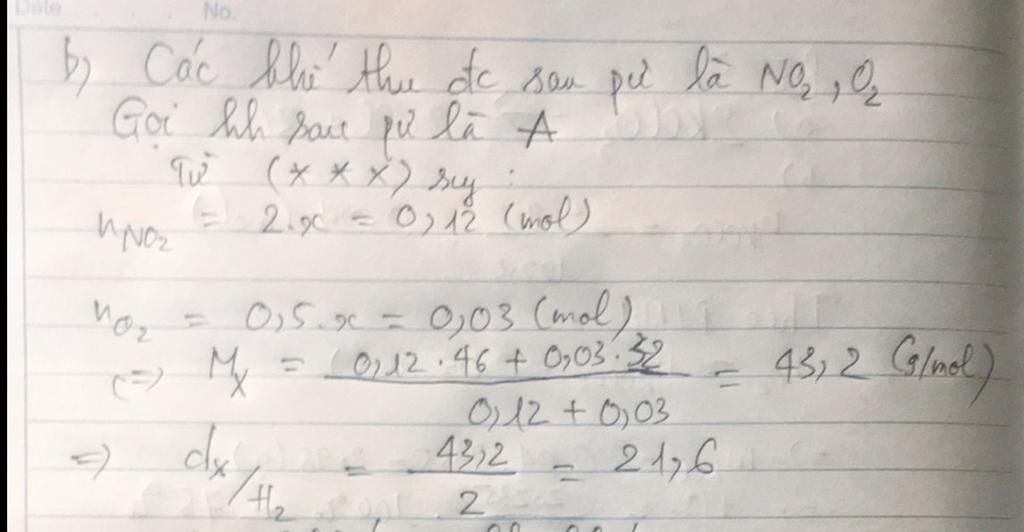 Date No.
b, Các khí thu đc sau pứ là NO₂, O₂
Gọi hh sau pứ là A
Từ (***) suy :
n_NO₂ = 2.x = 0,12 (mol)
n_O₂ = 0,5.x = 0,03 (mol)
(=) M_X = (0,12.46 + 0,03.32)/(0,12 + 0,03) = 43,2 (g/mol)
=) d_X/H₂ = 43,2/2 = 21,6